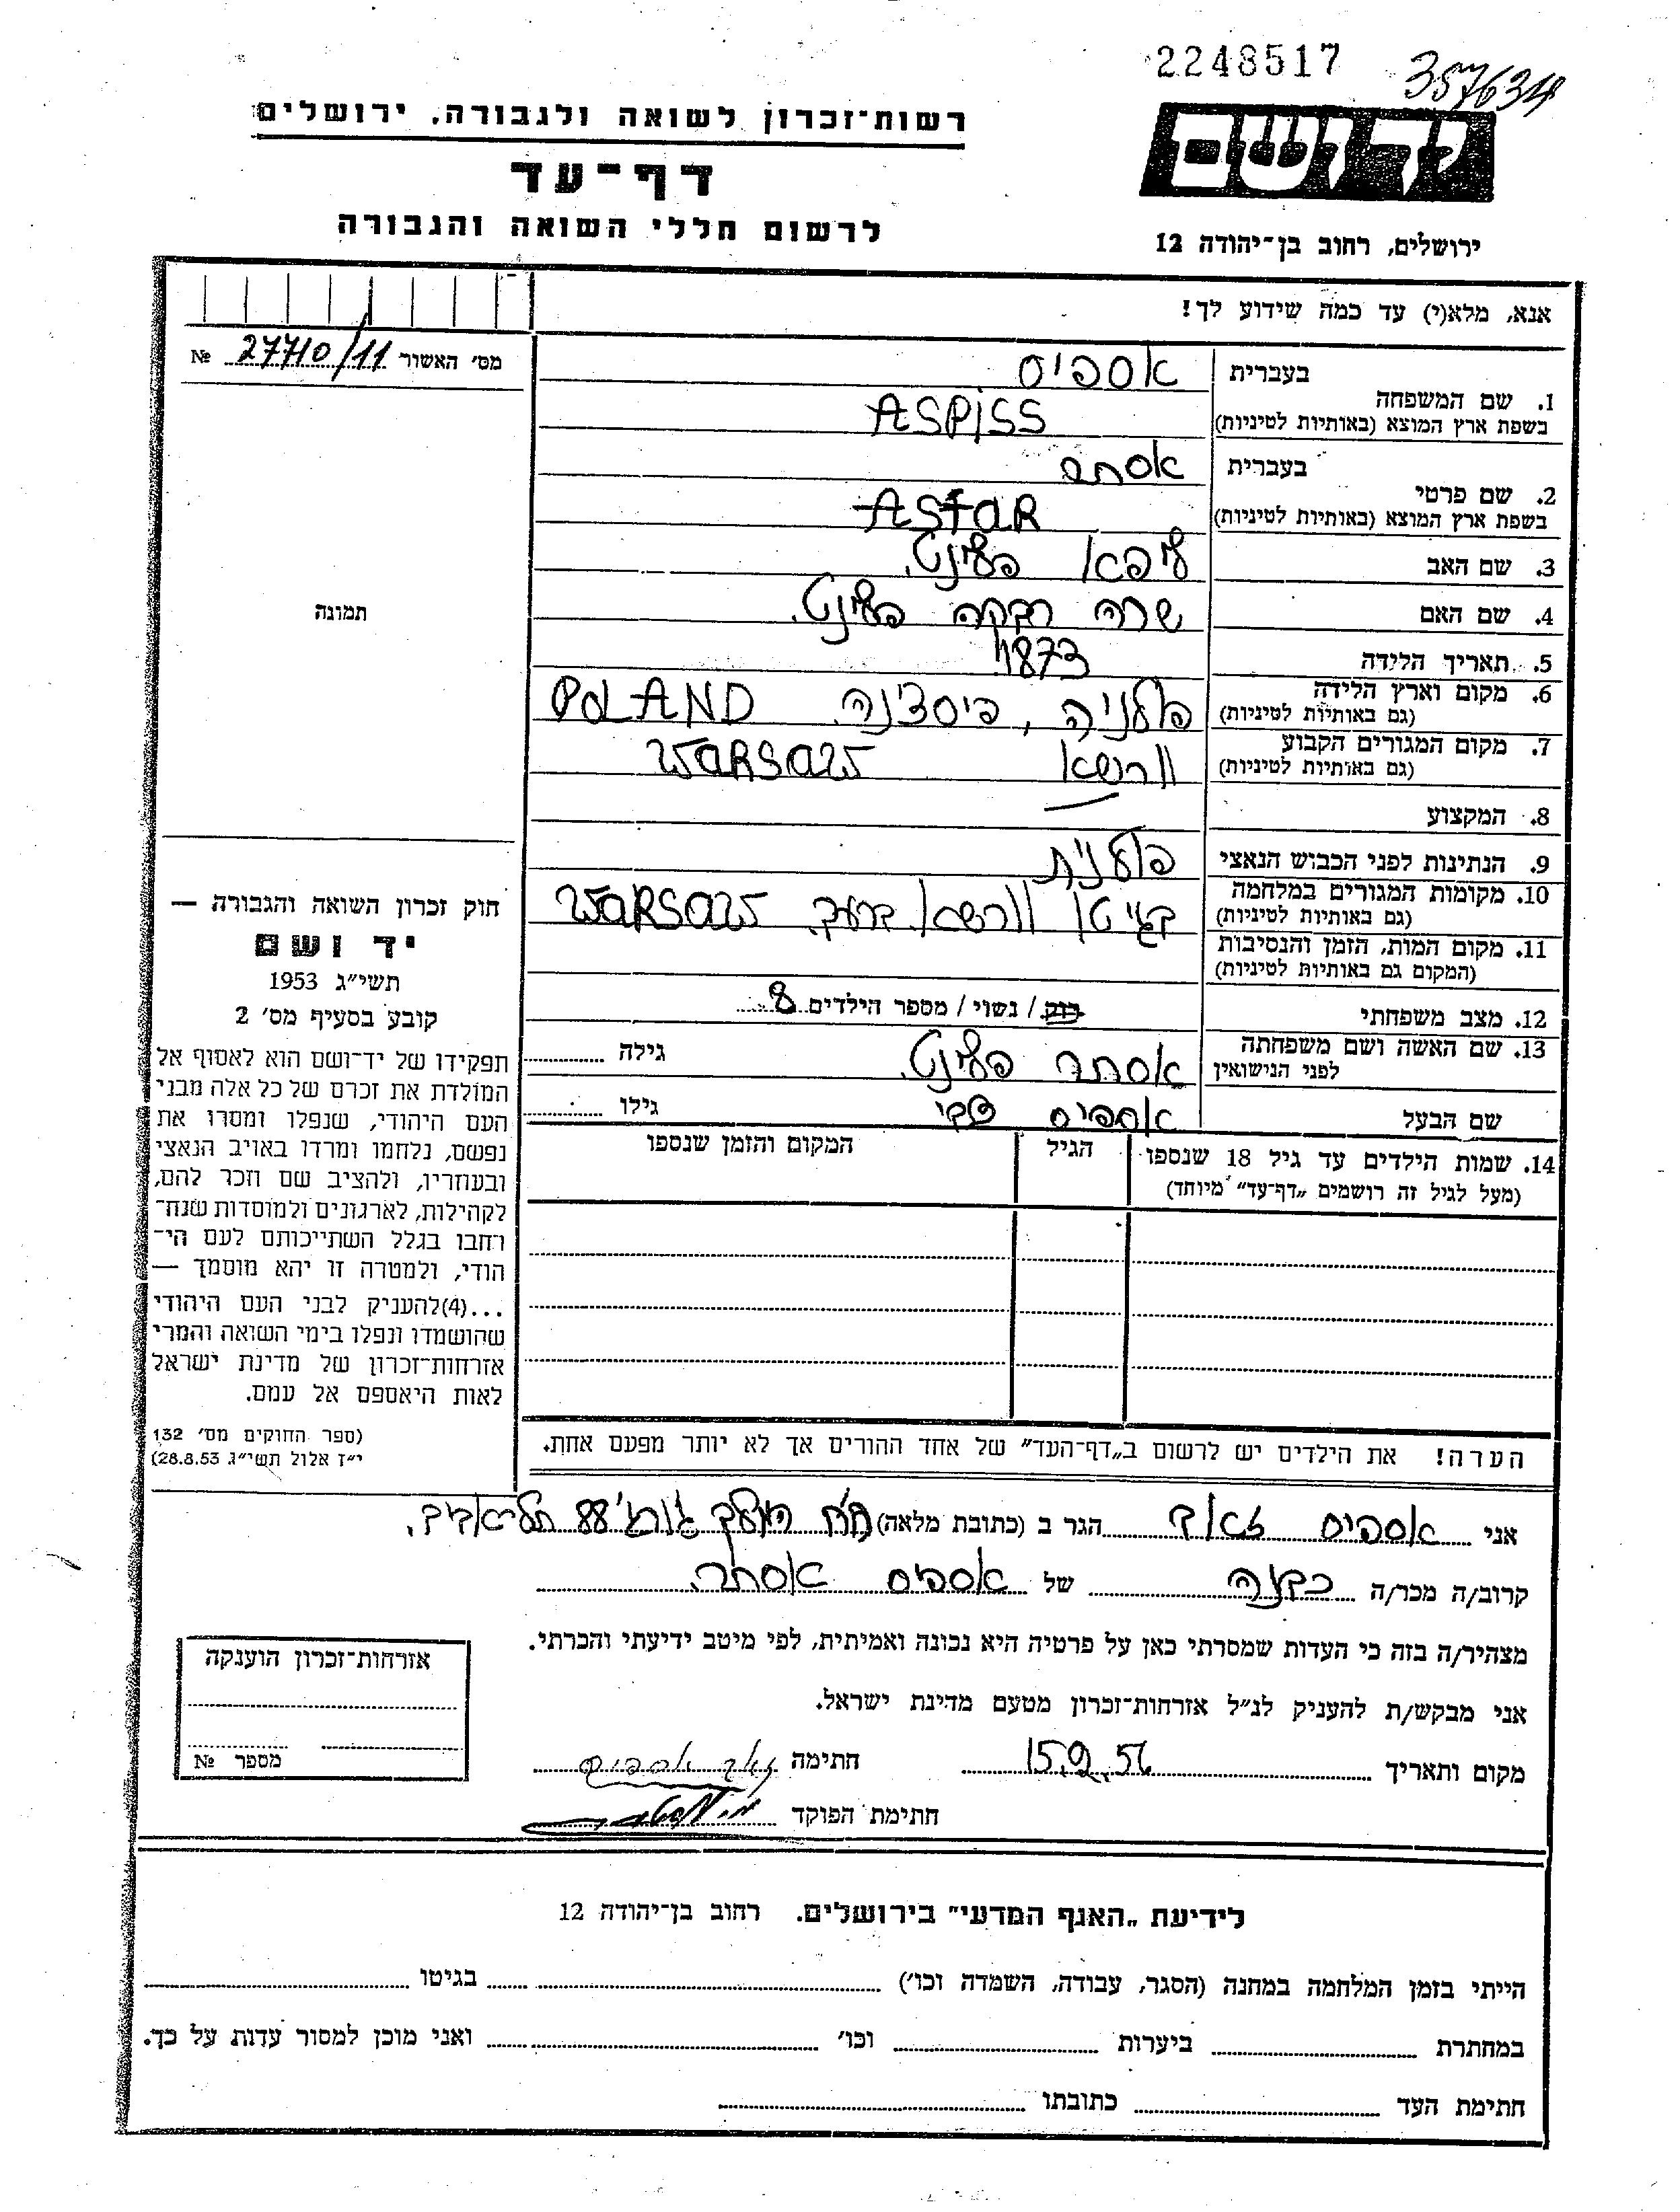 2248517
357634
רשות־זכרון לשואה ולגבורה, ירושלים
דף־עד
לרשום חללי השואה והגבורה
יד ושם
ירושלים, רחוב בן־יהודה 12
אנא, מלא(י) עד כמה שידוע לך!
מס׳ האשור 27710/11 №
תמונה
1. שם המשפחה
בעברית אספיס
בשפת ארץ המוצא (באותיות לטיניות) ASPISS
2. שם פרטי
בעברית אסתר
בשפת ארץ המוצא (באותיות לטיניות) AStaR
3. שם האב ליפא פלינט
4. שם האם שרה רבקה פלינט
5. תאריך הלידה 1873
6. מקום וארץ הלידה
(גם באותיות לטיניות) פולניה, פיסצ׳נה POLAND
7. מקום המגורים הקבוע
(גם באותיות לטיניות) וורשא WARSAW
8. המקצוע —
9. הנתינות לפני הכבוש הנאצי פולנית
10. מקומות המגורים במלחמה
(גם באותיות לטיניות) בגיטו וורשא WARSAW
11. מקום המות, הזמן והנסיבות
(המקום גם באותיות לטיניות)
12. מצב משפחתי רוק / נשוי / מספר הילדים 8
13. שם האשה ושם משפחתה
לפני הנישואין אסתר פלינט גילה
שם הבעל אספיס צבי גילו
14. שמות הילדים עד גיל 18 שנספו
(מעל לגיל זה רושמים „דף־עד״ מיוחד)
הגיל
המקום והזמן שנספו
הערה! את הילדים יש לרשום ב„דף־העד״ של אחד ההורים אך לא יותר מפעם אחת.
חוק זכרון השואה והגבורה —
יד ושם
תשי״ג 1953
קובע בסעיף מס׳ 2
תפקידו של יד־ושם הוא לאסוף אל
המולדת את זכרם של כל אלה מבני
העם היהודי, שנפלו ומסרו את
נפשם, נלחמו ומרדו באויב הנאצי
ובעוזריו, ולהציב שם וזכר להם,
לקהילות, לארגונים ולמוסדות שנח־
רחבו בגלל השתייכותם לעם הי־
הודי, ולמטרה זו יהא מוסמך —
...(4)להעניק לבני העם היהודי
שהושמדו ונפלו בימי השואה והמרי
אזרחות־זכרון של מדינת ישראל
לאות היאספם אל עמם.
(ספר החוקים מס׳ 132
י״ז אלול תשי״ג 28.8.53)
אני אספיס זאב הגר ב (כתובת מלאה) המלך ג׳ורג׳ 88 תל־אביב.
קרוב/ה מכר/ה בנה של אספיס אסתר
מצהיר/ה בזה כי העדות שמסרתי כאן על פרטיה היא נכונה ואמיתית, לפי מיטב ידיעתי והכרתי.
אני מבקש/ת להעניק לנ״ל אזרחות־זכרון מטעם מדינת ישראל.
מקום ותאריך 15.9.56 חתימה זאב אספיס
חתימת הפוקד
אזרחות־זכרון הוענקה
מספר №
לידיעת „האגף המדעי״ בירושלים. רחוב בן־יהודה 12
הייתי בזמן המלחמה במחנה (הסגר, עבודה, השמדה וכו׳) בגיטו
במחתרת ביערות וכו׳ ואני מוכן למסור עדות על כך.
חתימת העד כתובתו